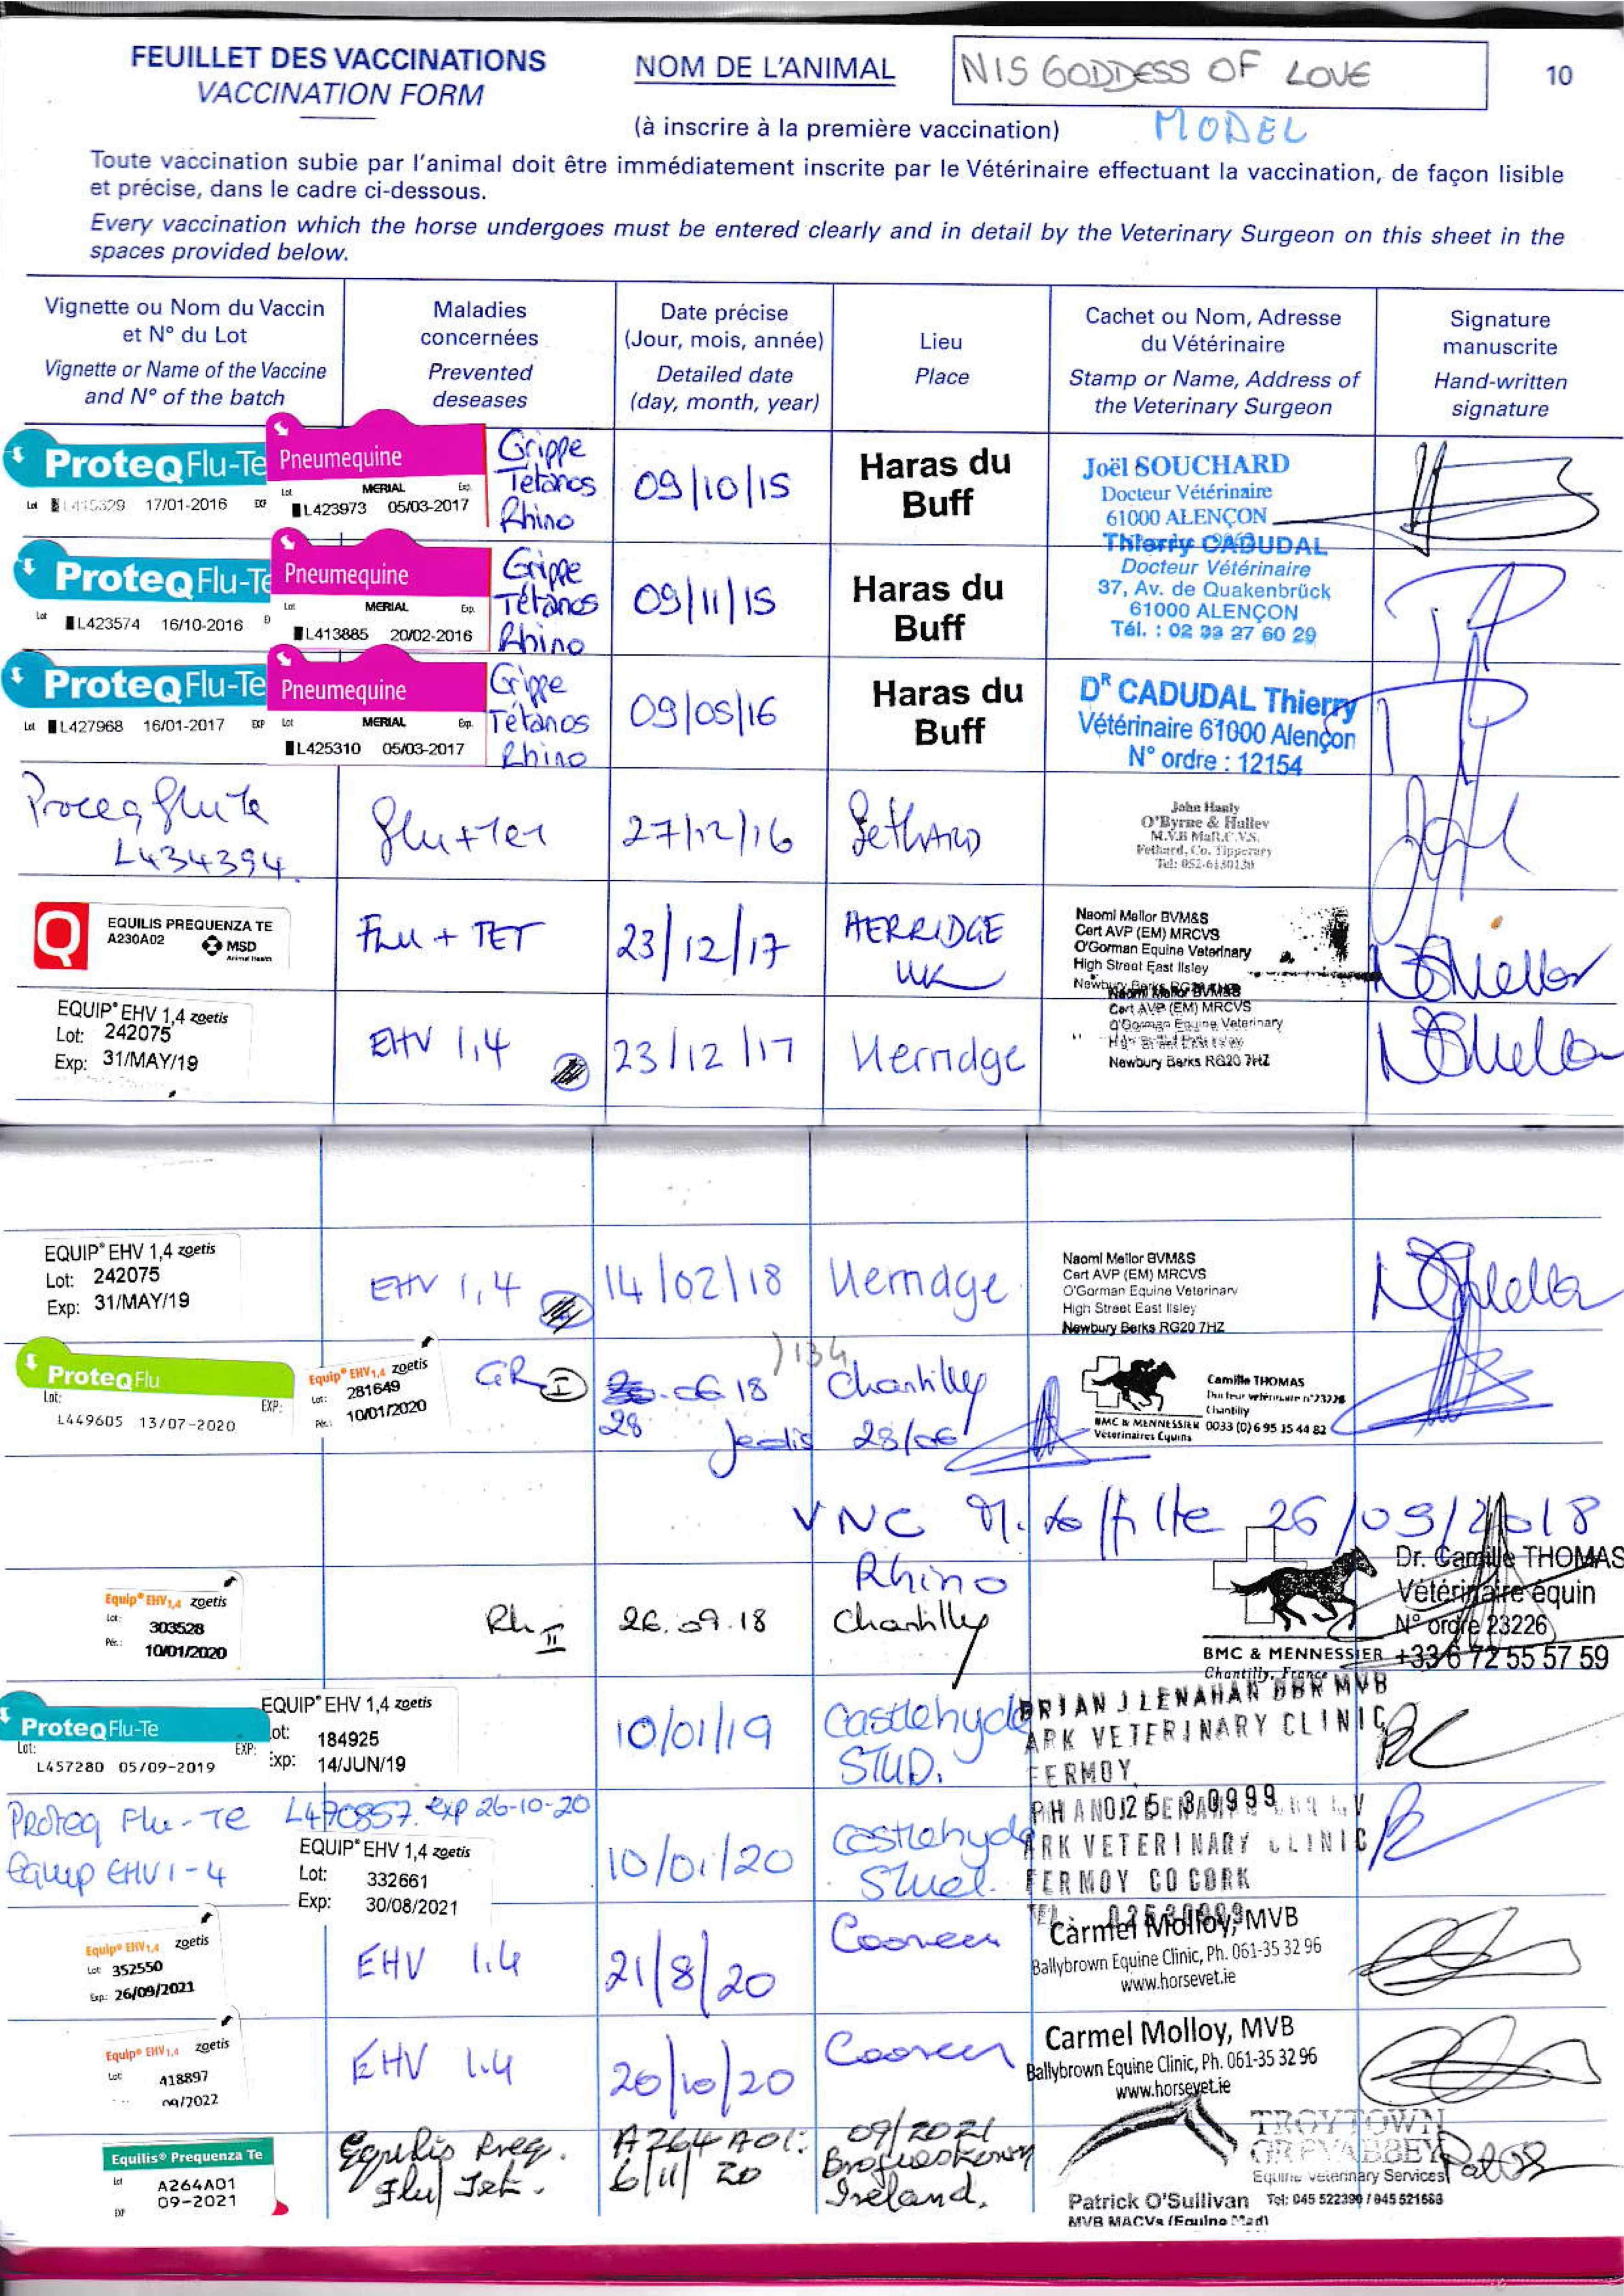 FEUILLET DES VACCINATIONS
VACCINATION FORM
NOM DE L'ANIMAL
NIS GODDESS OF LOVE
10
(à inscrire à la première vaccination)
MODEL
Toute vaccination subie par l'animal doit être immédiatement inscrite par le Vétérinaire effectuant la vaccination, de façon lisible
et précise, dans le cadre ci-dessous.
Every vaccination which the horse undergoes must be entered clearly and in detail by the Veterinary Surgeon on this sheet in the
spaces provided below.
Vignette ou Nom du Vaccin
et N° du Lot
Vignette or Name of the Vaccine
and N° of the batch
Maladies
concernées
Prevented
deseases
Date précise
(Jour, mois, année)
Detailed date
(day, month, year)
Lieu
Place
Cachet ou Nom, Adresse
du Vétérinaire
Stamp or Name, Address of
the Veterinary Surgeon
Signature
manuscrite
Hand-written
signature
ProteqFlu-Te
Lot 17/01-2016 EXP
Pneumequine
Lot MERIAL Exp.
L423973 05/03-2017
Grippe
Tétanos
Rhino
09/10/15
Haras du
Buff
Joël SOUCHARD
Docteur Vétérinaire
61000 ALENÇON
ProteqFlu-Te
Lot L423574 16/10-2016
Pneumequine
Lot MERIAL Exp.
L413885 20/02-2016
Grippe
Tétanos
Rhino
09/11/15
Haras du
Buff
Thierry CADUDAL
Docteur Vétérinaire
37, Av. de Quakenbrück
61000 ALENÇON
Tél. : 02 33 27 60 29
ProteqFlu-Te
Lot L427968 16/01-2017 EXP
Pneumequine
Lot MERIAL Exp.
L425310 05/03-2017
Grippe
Tétanos
Rhino
09/05/16
Haras du
Buff
DR CADUDAL Thierry
Vétérinaire 61000 Alençon
N° ordre : 12154
Proceq Flu Te
L434394
Flu+Tet
27/12/16
Fethard
John Hanly
O'Byrne & Halley
M.V.B MRC.V.S.
Fethard, Co. Tipperary
Tel: 052-6130130
EQUILIS PREQUENZA TE
A230A02
MSD
Animal Health
Flu + TET
23/12/17
HERRIDGE
UK
Naomi Mellor BVM&S
Cert AVP (EM) MRCVS
O'Gorman Equine Veterinary
High Street East Ilsley
EQUIP® EHV 1,4 zoetis
Lot: 242075
Exp: 31/MAY/19
EHV 1,4
23/12/17
Herridge
Naomi Mellor BVM&S
Cert AVP (EM) MRCVS
O'Gorman Equine Veterinary
Newbury Berks RG20 7HZ
EQUIP® EHV 1,4 zoetis
Lot: 242075
Exp: 31/MAY/19
EHV 1,4
14/02/18
Herridge
Naomi Mellor BVM&S
Cert AVP (EM) MRCVS
O'Gorman Equine Veterinary
High Street East Ilsley
Newbury Berks RG20 7HZ
ProteqFlu
Lot: EXP:
L449605 13/07-2020
Equip® EHV1,4 zoetis
Lot: 281649
Pér.: 10/01/2020
GR I
.06 18
28
134
Chantilly
Jeudis 28/06
Camille THOMAS
Docteur vétérinaire n°23226
Chantilly
0033 (0)6 95 35 44 82
BMC & MENNESSIER
Vétérinaires Equins
VNC
26/09/2018
Rhino
Equip® EHV1,4 zoetis
Lot: 303528
Pér.: 10/01/2020
Rh II
26.09.18
Chantilly
Dr. Camille THOMAS
Vétérinaire équin
N° ordre 23226
BMC & MENNESSIER +33 6 72 55 57 59
Chantilly, France
ProteqFlu-Te
Lot: EXP:
L457280 05/09-2019
EQUIP® EHV 1,4 zoetis
Lot: 184925
Exp: 14/JUN/19
10/01/19
Castlehyde
STUD.
BRIAN J LENAHAN DBR MVB
ARK VETERINARY CLINIC
FERMOY
Proteq Flu-Te L470857. exp 26-10-20
Equip EHV 1-4
EQUIP® EHV 1,4 zoetis
Lot: 332661
Exp: 30/08/2021
10/01/20
Castlehyde
Stud.
ARK VETERINARY CLINIC
FERMOY CO CORK
Equip® EHV1,4 zoetis
Lot: 352550
Exp.: 26/09/2021
EHV 1.4
21/8/20
Cooreen
Carmel Molloy, MVB
Ballybrown Equine Clinic, Ph. 061-35 32 96
www.horsevet.ie
Equip® EHV1,4 zoetis
Lot: 418897
09/2022
EHV 1.4
20/10/20
Cooreen
Carmel Molloy, MVB
Ballybrown Equine Clinic, Ph. 061-35 32 96
www.horsevet.ie
Equilis® Prequenza Te
Lot A264A01
EXP 09-2021
Equilis Preq.
Flu/Tet.
A264A01.
6/11/20
09/2021
Ireland.
TROYTOWN
GREYABBEY
Equine Veterinary Services
Patrick O'Sullivan Tel: 045 522390 / 045 521686
MVB MACVs (Equine Med)